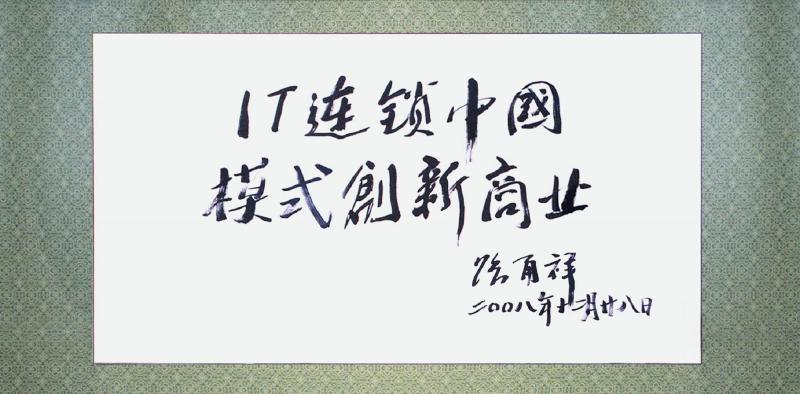 IT连锁中國
模式創新商业
路甬祥
二〇〇八年十二月廿八日